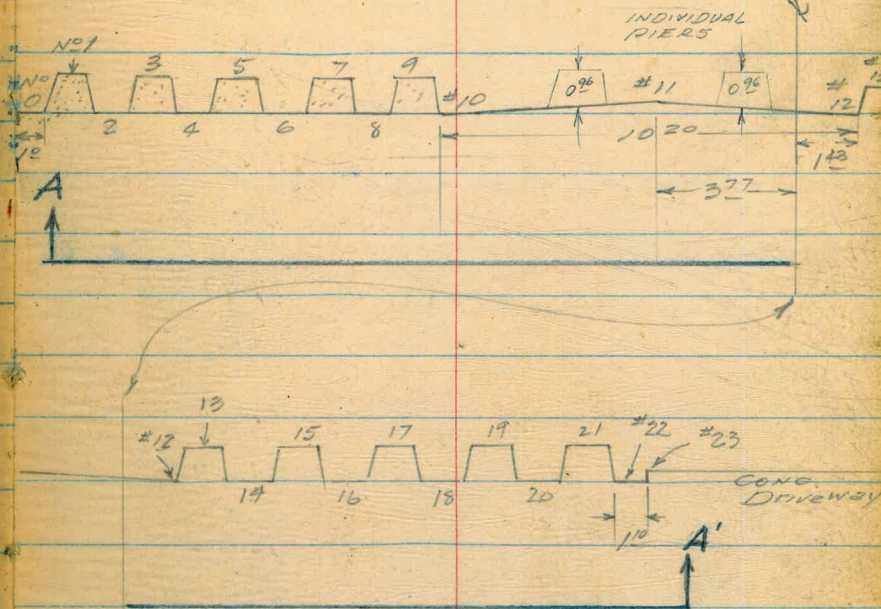 INDIVIDUAL
PIERS
Nº 1 3 5 7 9
Nº 0 #10 0.96 #11 0.96 #12
2 4 6 8
10.20
1.43
3.77
A
13
#12 15 17 19 21 #22 #23
14 16 18 20
CONC.
Driveway
1.10
A'